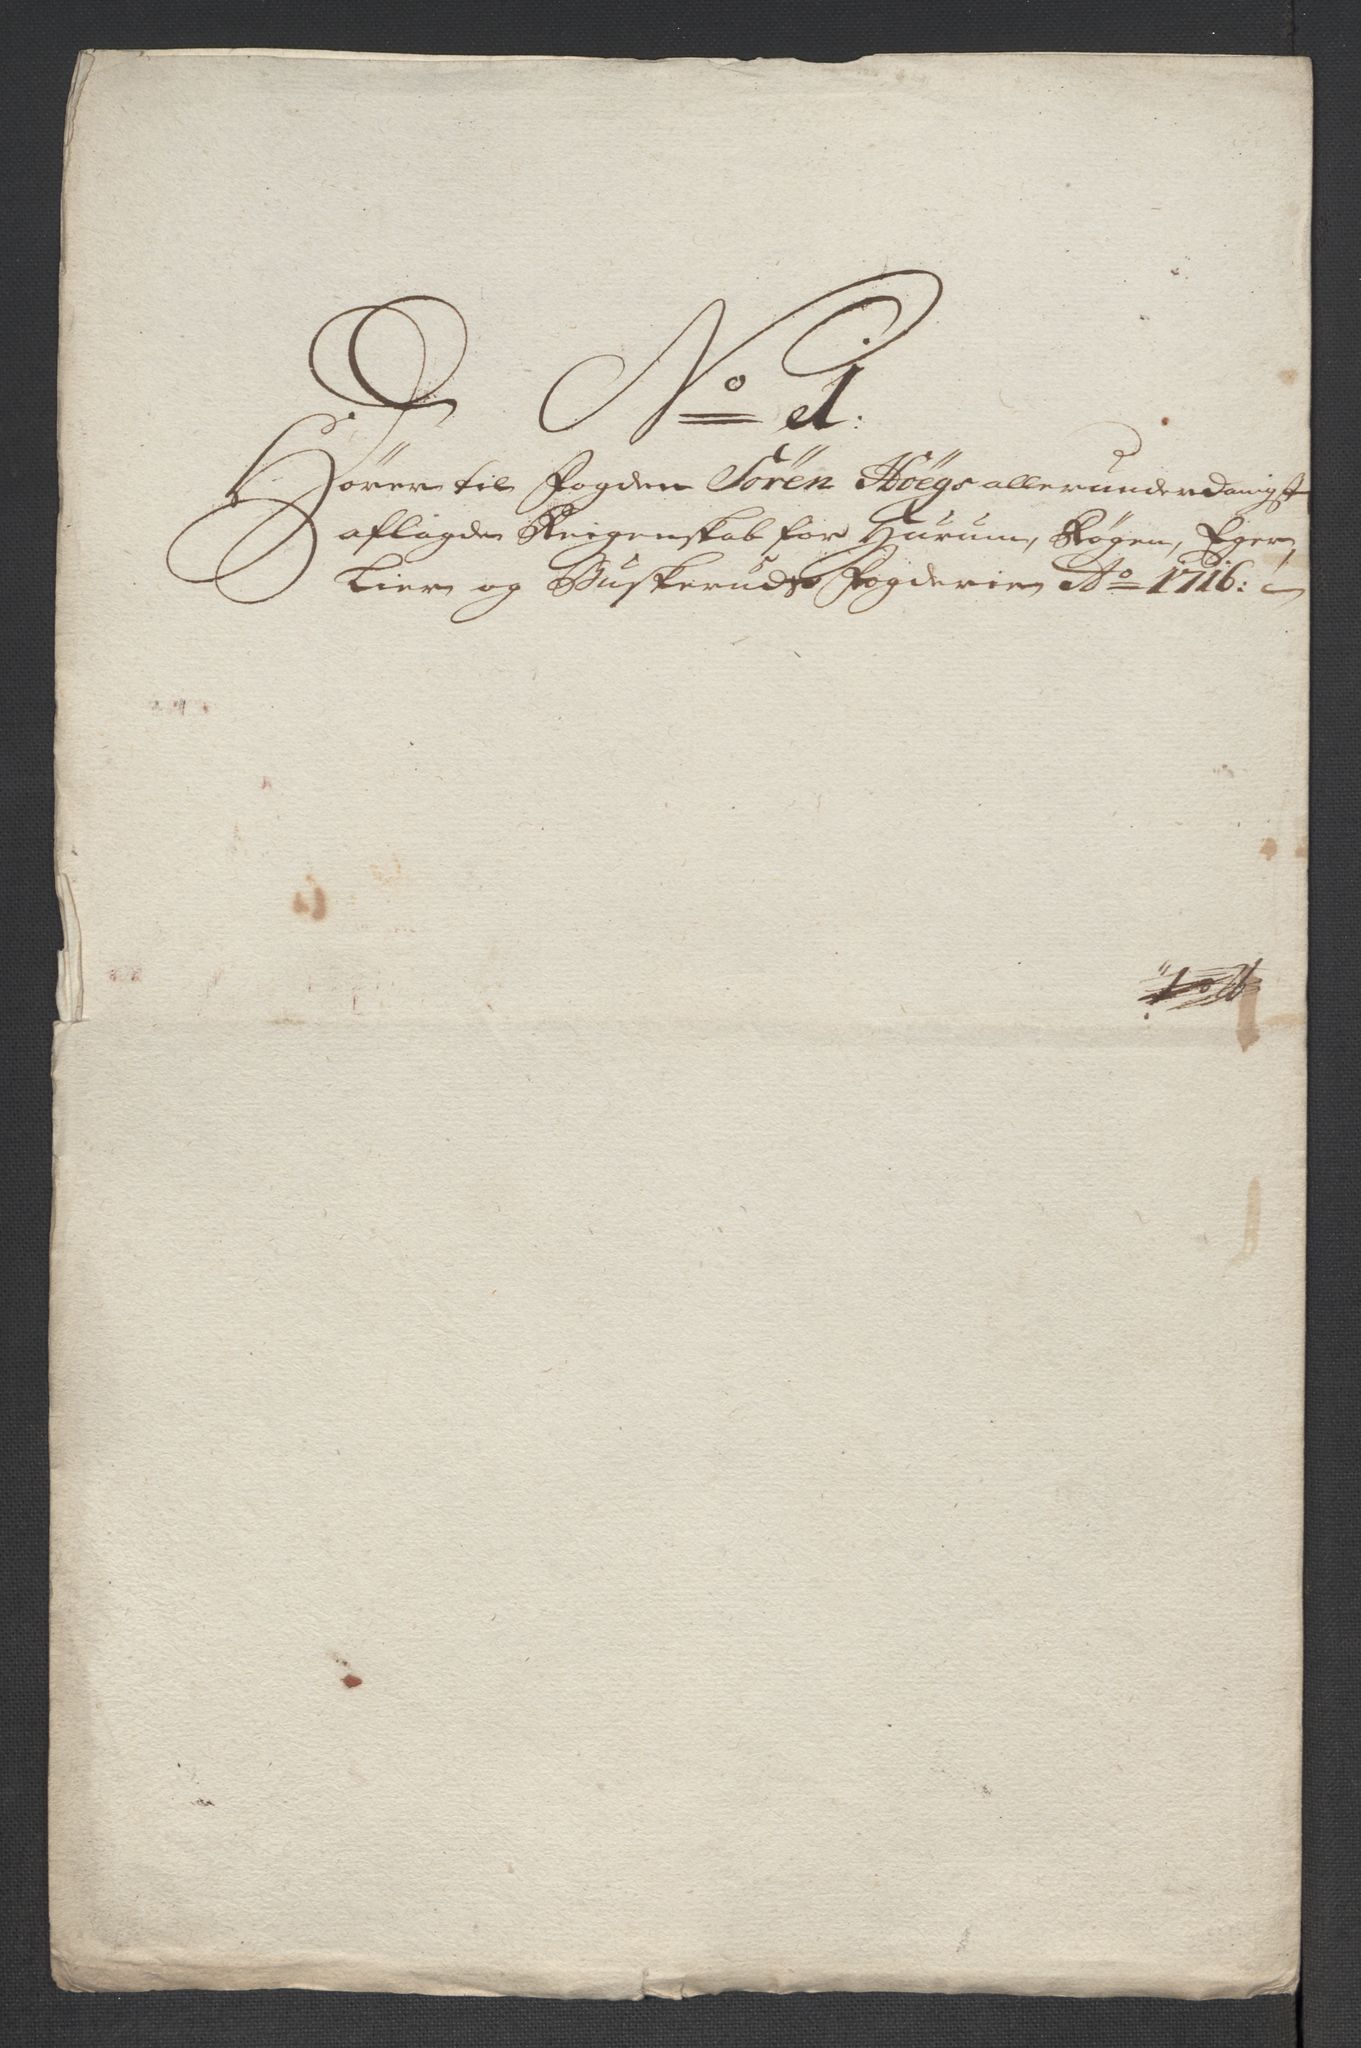 No 1.
Hörer til Fogden Sören Höegs allerunderdanigst
aflagde Reigenskab for Hurum, Røgen, Eger,
Lier og Buskeruds Fogderier Ao 1716: